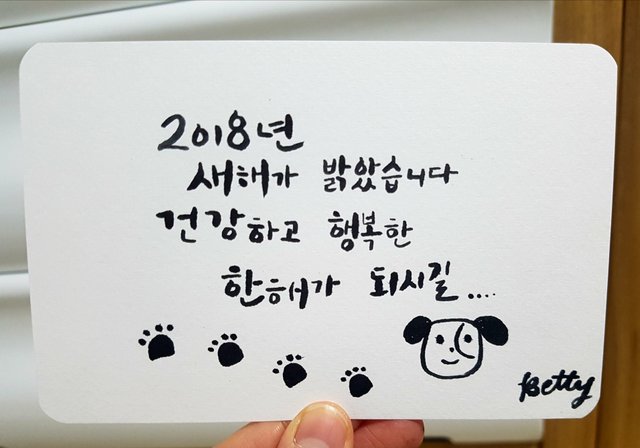 2018년
새해가 밝았습니다
건강하고 행복한
한해가 되시길....
Betty